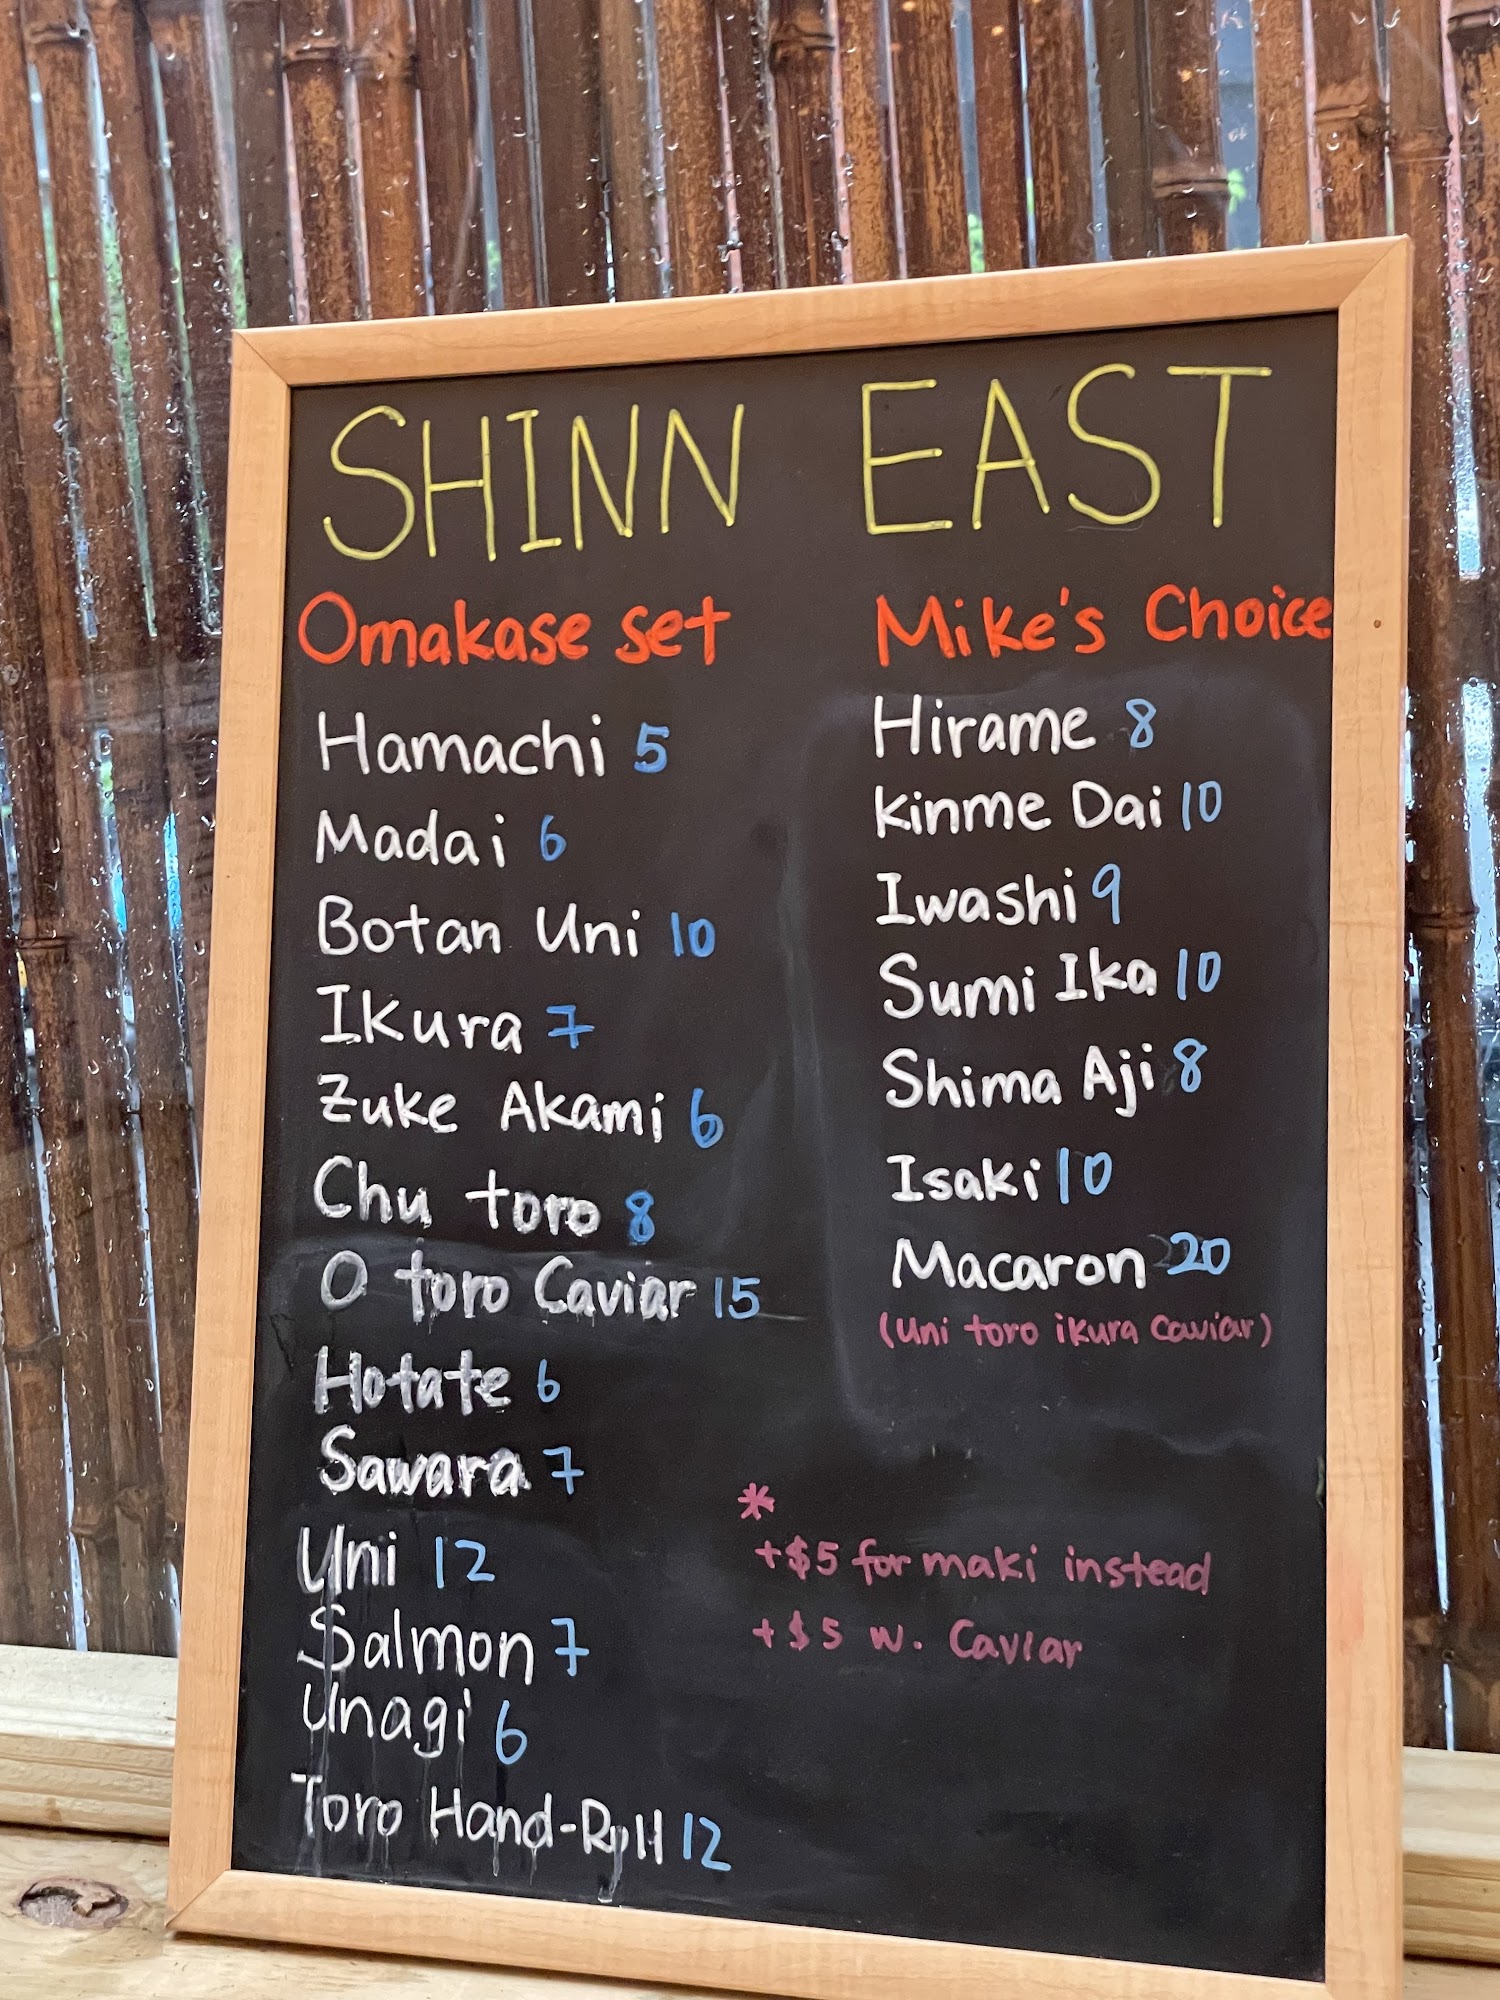 SHINN EAST
Omakase set
Hamachi 5
Madai 6
Botan Uni 10
Ikura 7
Zuke Akami 6
Chu toro 8
O toro Caviar 15
Hotate 6
Sawara 7
Uni 12
Salmon 7
Unagi 6
Toro Hand-Roll 12
Mike's Choice
Hirame 8
Kinme Dai 10
Iwashi 9
Sumi Ika 10
Shima Aji 8
Isaki 10
Macaron 20
(uni toro ikura caviar)
*
+$5 for maki instead
+$5 w. Caviar